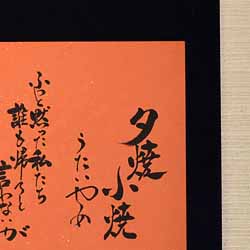 夕焼小焼
うたいやめ
ふっと黙った私たち
誰も帰ろと
言わないが